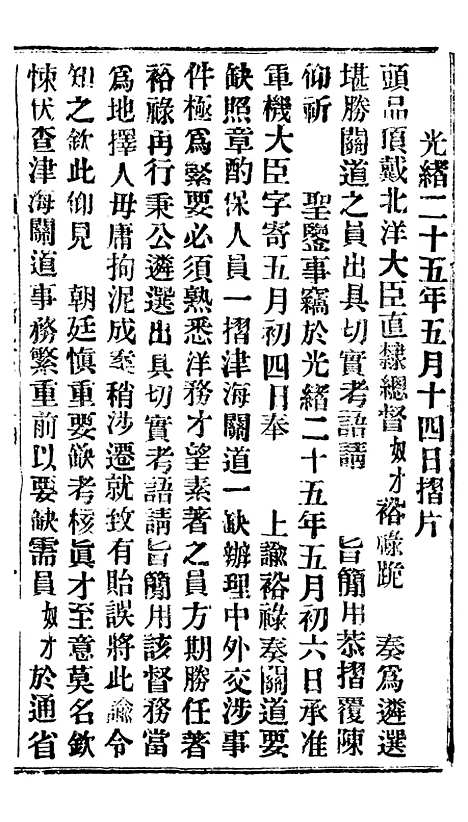 光緒二十五年五月十四日摺片
頭品頂戴北洋大臣直隸總督奴才裕祿跪　奏爲遴選
堪勝關道之員出具切實考語請　旨簡用恭摺覆陳
仰祈　聖鑒事竊於光緒二十五年五月初六日承准
軍機大臣字寄五月初四日奉　上諭裕祿奏關道要
缺照章酌保人員一摺津海關道一缺辦理中外交涉事
件極爲緊要必須熟悉洋務才望素著之員方期勝任著
裕祿再行秉公遴選出具切實考語請旨簡用該督務當
爲地擇人毋庸拘泥成案稍涉遷就致有貽誤將此諭令
知之欽此仰見　朝廷愼重要缺考核眞才至意莫名欽
悚伏查津海關道事務繁重前以要缺需員奴才於通省